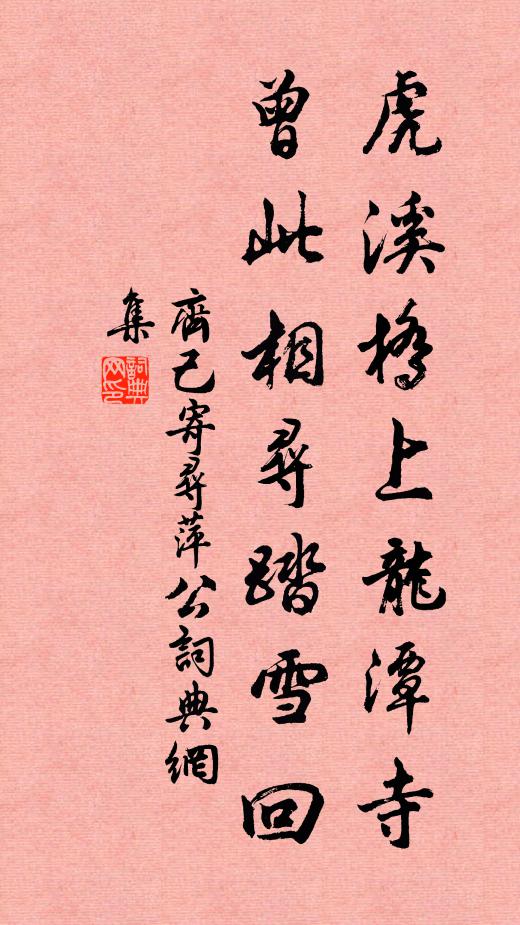 虎溪橋上龍潭寺
曾此相尋踏雪回
齊己寄尋萍公詞典網
集
詞典
网印